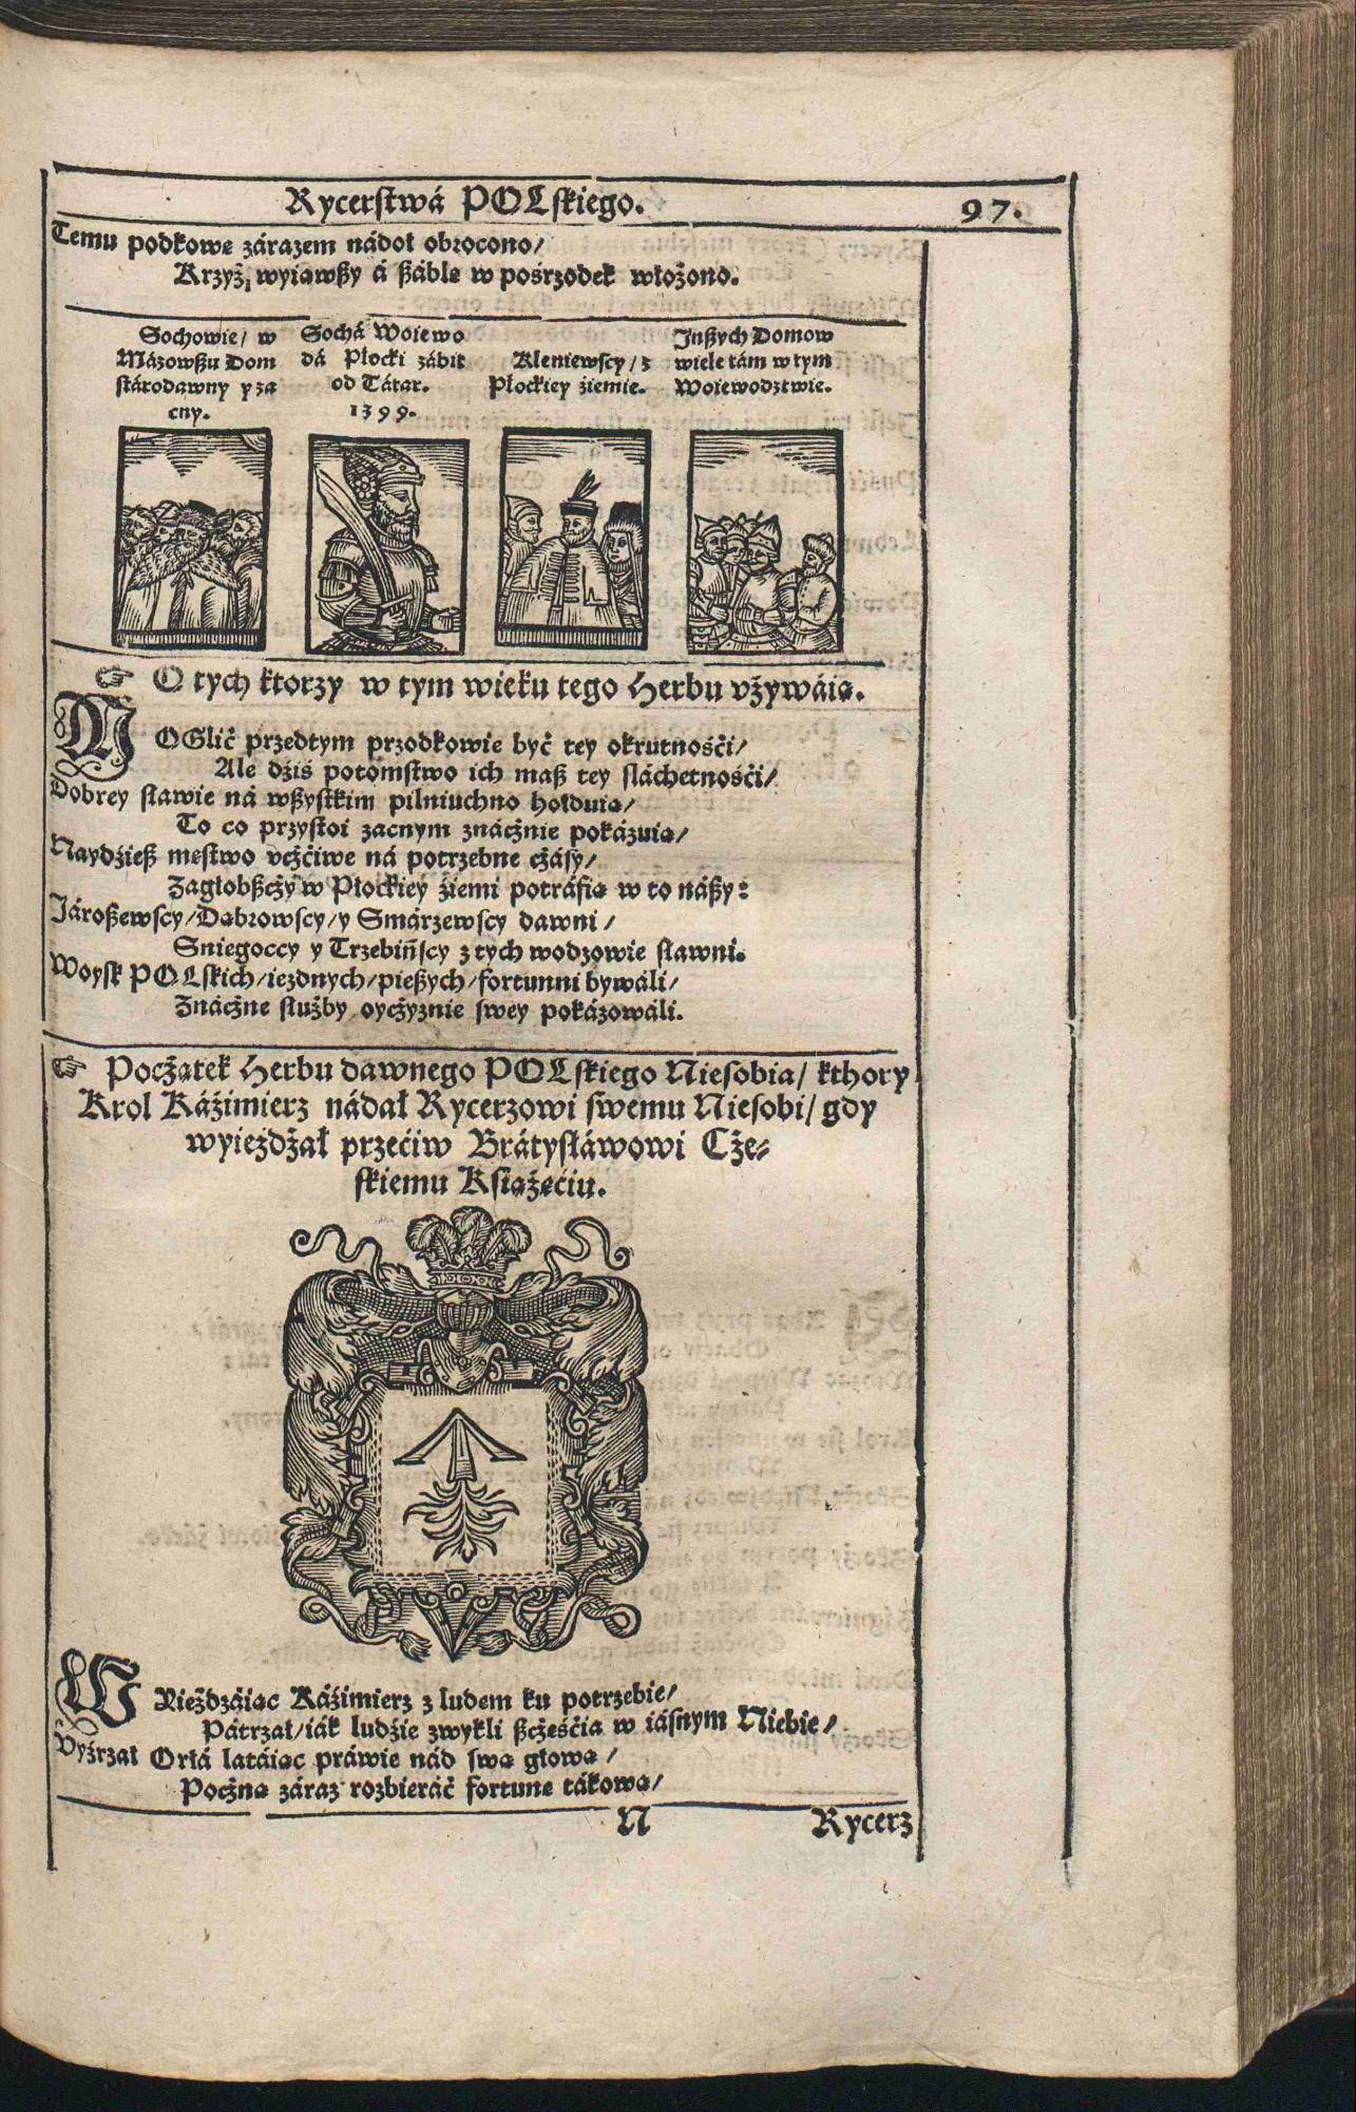 Rycerſtwá POLſkiego.
97.
Temu podkowe zárazem nádoł obrocono/
Krzyż, wyiąwßy á ßáblą w pośrzodek włożono.
Sochowie/ w
Mázowßu Dom
ſtárodawny y za
cny.
Sochá Woiewo
dá Płocki zábit
od Tátar.
1399.
Kleniewſcy/ z
Płockiey źiemie.
Jnßych Domow
wiele tám w tym
Woiewodztwie.
☞ O tych ktorzy w tym wieku tego Herbu vżywáią.
MOGlić przedtym przodkowie być tey okrutnośći/
Ale dźiś potomſtwo ich maß tey ſláchetnośći/
Dobrey ſławie ná wßyſtkim pilniuchno hołduią/
To co przyſtoi zacnym znácżnie pokázuią/
Naydźieß męſtwo vcżćiwe ná potrzebne cżáſy/
Zagłobßcży w Płockiey źiemi potráfią w to náßy:
Jároßewſcy/Dąbrowſcy/y Smárzewſcy dawni/
Sniegoccy y Trzebińſcy z tych wodzowie ſławni.
Woyſk POLſkich/iezdnych/pießych/fortunni bywáli/
Znácżne ſłużby oycżyznie ſwey pokázowáli.
☞ Pocżątek Herbu dawnego POLſkiego Nieſobia/ kthory
Krol Káźimierz nádał Rycerzowi ſwemu Nieſobi/ gdy
wyieżdżał przećiw Brátyſłáwowi Cże⸗
ſkiemu Kſiążęćiu.
WNieżdzáiąc Káźimierz z ludem ku potrzebie/
Pátrzał/iák ludźie zwykli ßcżęśćia w iáſnym Niebie/
Vyźrzał Orłá latáiąc práwie nád ſwą głową/
Pocżną záraz rozbieráć fortunę tákową/
N
Rycerz